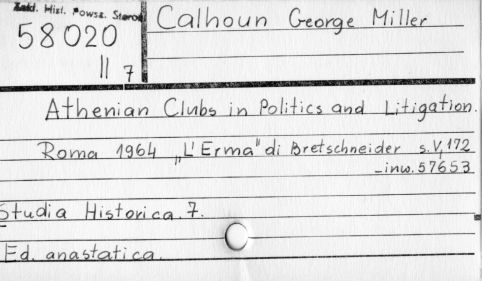 Zakł. Hist. Powsz. Staroż.
58020
II 7
Calhoun George Miller
Athenian Clubs in Politics and Litigation.
Roma 1964 „L'Erma" di Bretschneider s.V,172
inw. 57653
Studia Historica. 7.
Ed. anastatica.